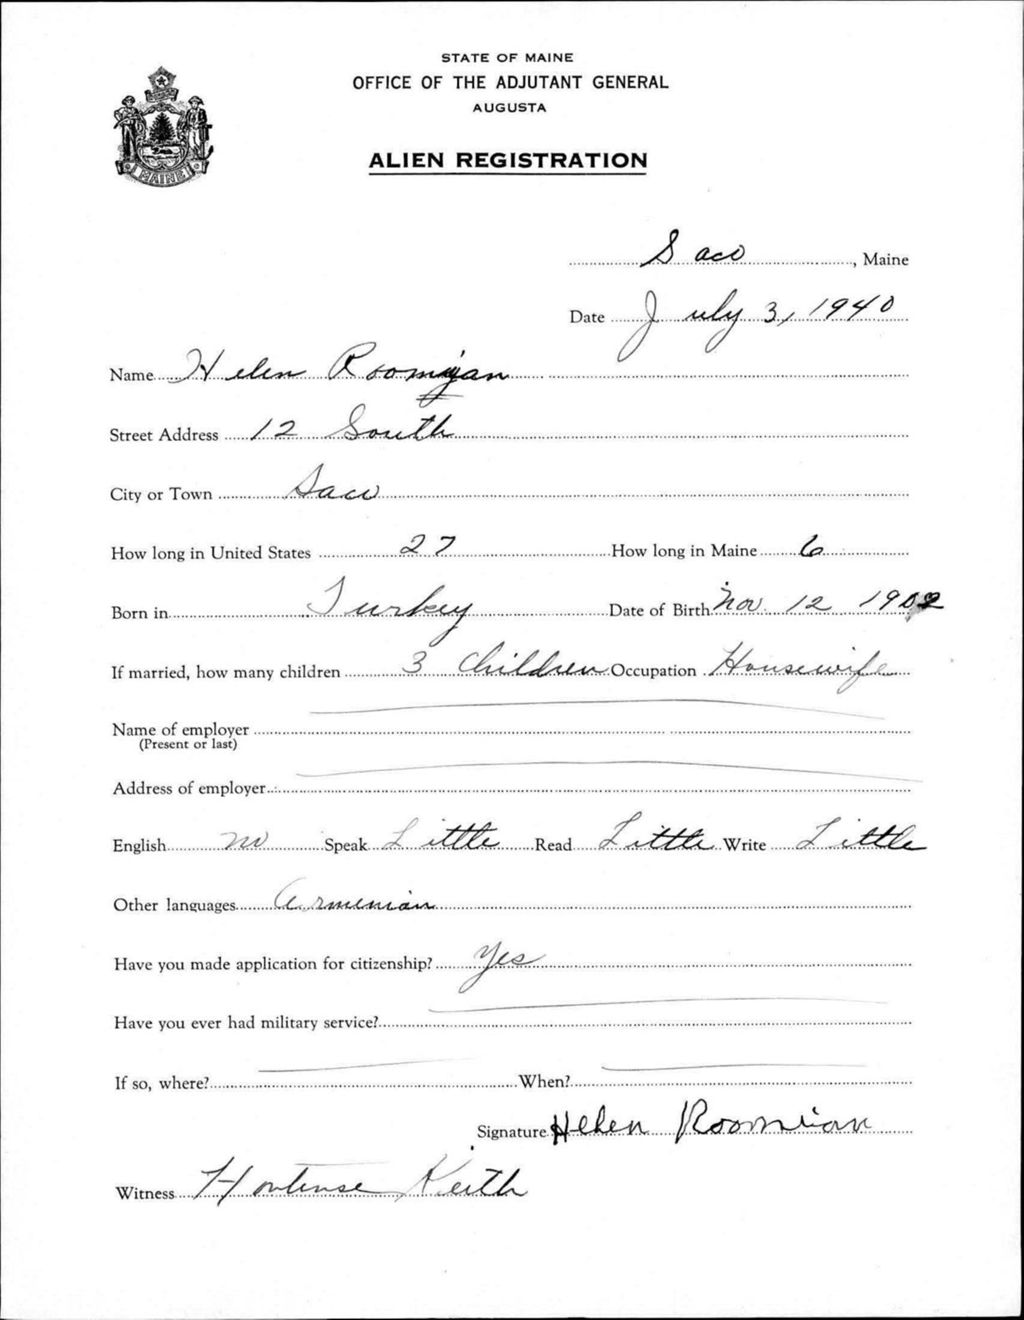 STATE OF MAINE
OFFICE OF THE ADJUTANT GENERAL
AUGUSTA
MAINE
ALIEN REGISTRATION
Saco, Maine
Date July 3, 1940
Name Helen Roomian
Street Address 12 South
City or Town Saco
How long in United States 27 How long in Maine 6
Born in Turkey Date of Birth Nov 12 1902
If married, how many children 3 Children Occupation Housewife
Name of employer
(Present or last)
Address of employer
English no Speak Little Read Little Write Little
Other languages Armenian
Have you made application for citizenship? Yes
Have you ever had military service?
If so, where? When?
Signature Helen Roomian
Witness Hortense Keith